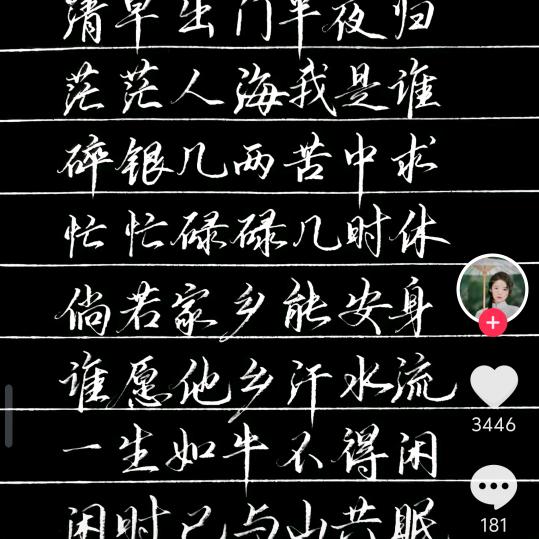 清早出门半夜归
茫茫人海我是谁
碎银几两苦中求
忙忙碌碌几时休
倘若家乡能安身
谁愿他乡汗水流
一生如牛不得闲
闲时已与山共眠
3446
181